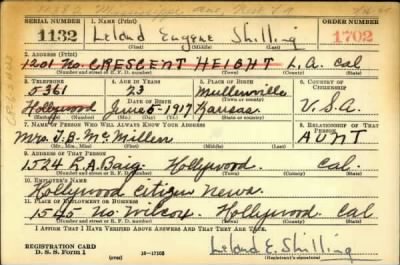 SERIAL NUMBER 1. NAME (Print) ORDER NUMBER
1132 Leland Eugene Shilling 1702
(First) (Middle) (Last)
2. ADDRESS (Print)
1201 No. CRESCENT HEIGHT L.A. Cal
(Number and street or R. F. D. number) (Town) (County) (State)
3. TELEPHONE 4. AGE IN YEARS 5. PLACE OF BIRTH 6. COUNTRY OF CITIZENSHIP
0361 23 Mullenville
DATE OF BIRTH
Hollywood June 5-1917 Kansas U.S.A.
(Exchange) (Number) (Mo.) (Day) (Yr.) (State or country)
7. NAME OF PERSON WHO WILL ALWAYS KNOW YOUR ADDRESS 8. RELATIONSHIP OF THAT PERSON
Mrs. J.B. McMillen AUNT
(Mr., Mrs., Miss) (First) (Middle) (Last)
9. ADDRESS OF THAT PERSON
1524 Hollywood. Cal
(Number and street or R. F. D. number) (Town) (County) (State)
10. EMPLOYER'S NAME
Hollywood Citizen News
11. PLACE OF EMPLOYMENT OR BUSINESS
1545 No. Wilcox. Hollywood Cal
(Number and street or R. F. D. number) (Town) (County) (State)
I AFFIRM THAT I HAVE VERIFIED ABOVE ANSWERS AND THAT THEY ARE TRUE.
REGISTRATION CARD
D. S. S. Form 1 16-17105 Leland E. Shilling
(Registrant's signature)